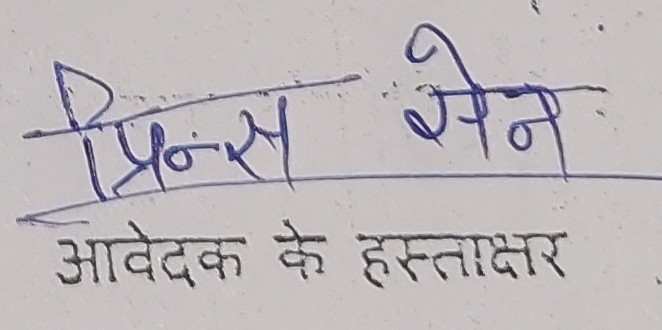 प्रिन्स सेन
आवेदक के हस्ताक्षर